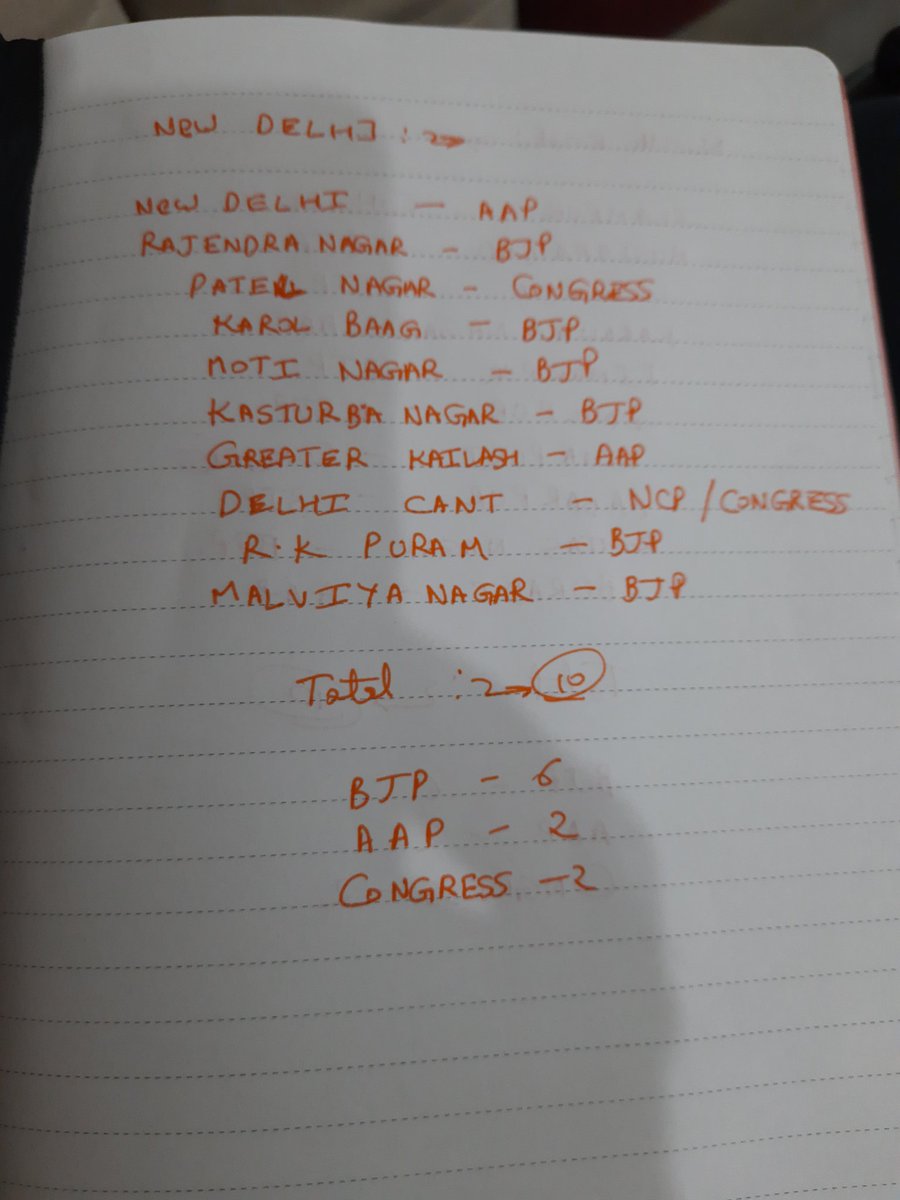 NEW DELHI :→
NEW DELHI - AAP
RAJENDRA NAGAR - BJP
PATEL NAGAR - CONGRESS
KAROL BAAG - BJP
MOTI NAGAR - BJP
KASTURBA NAGAR - BJP
GREATER KAILASH - AAP
DELHI CANT - NCP/CONGRESS
R.K PURAM - BJP
MALVIYA NAGAR - BJP
Total :→ 10
BJP - 6
AAP - 2
CONGRESS - 2